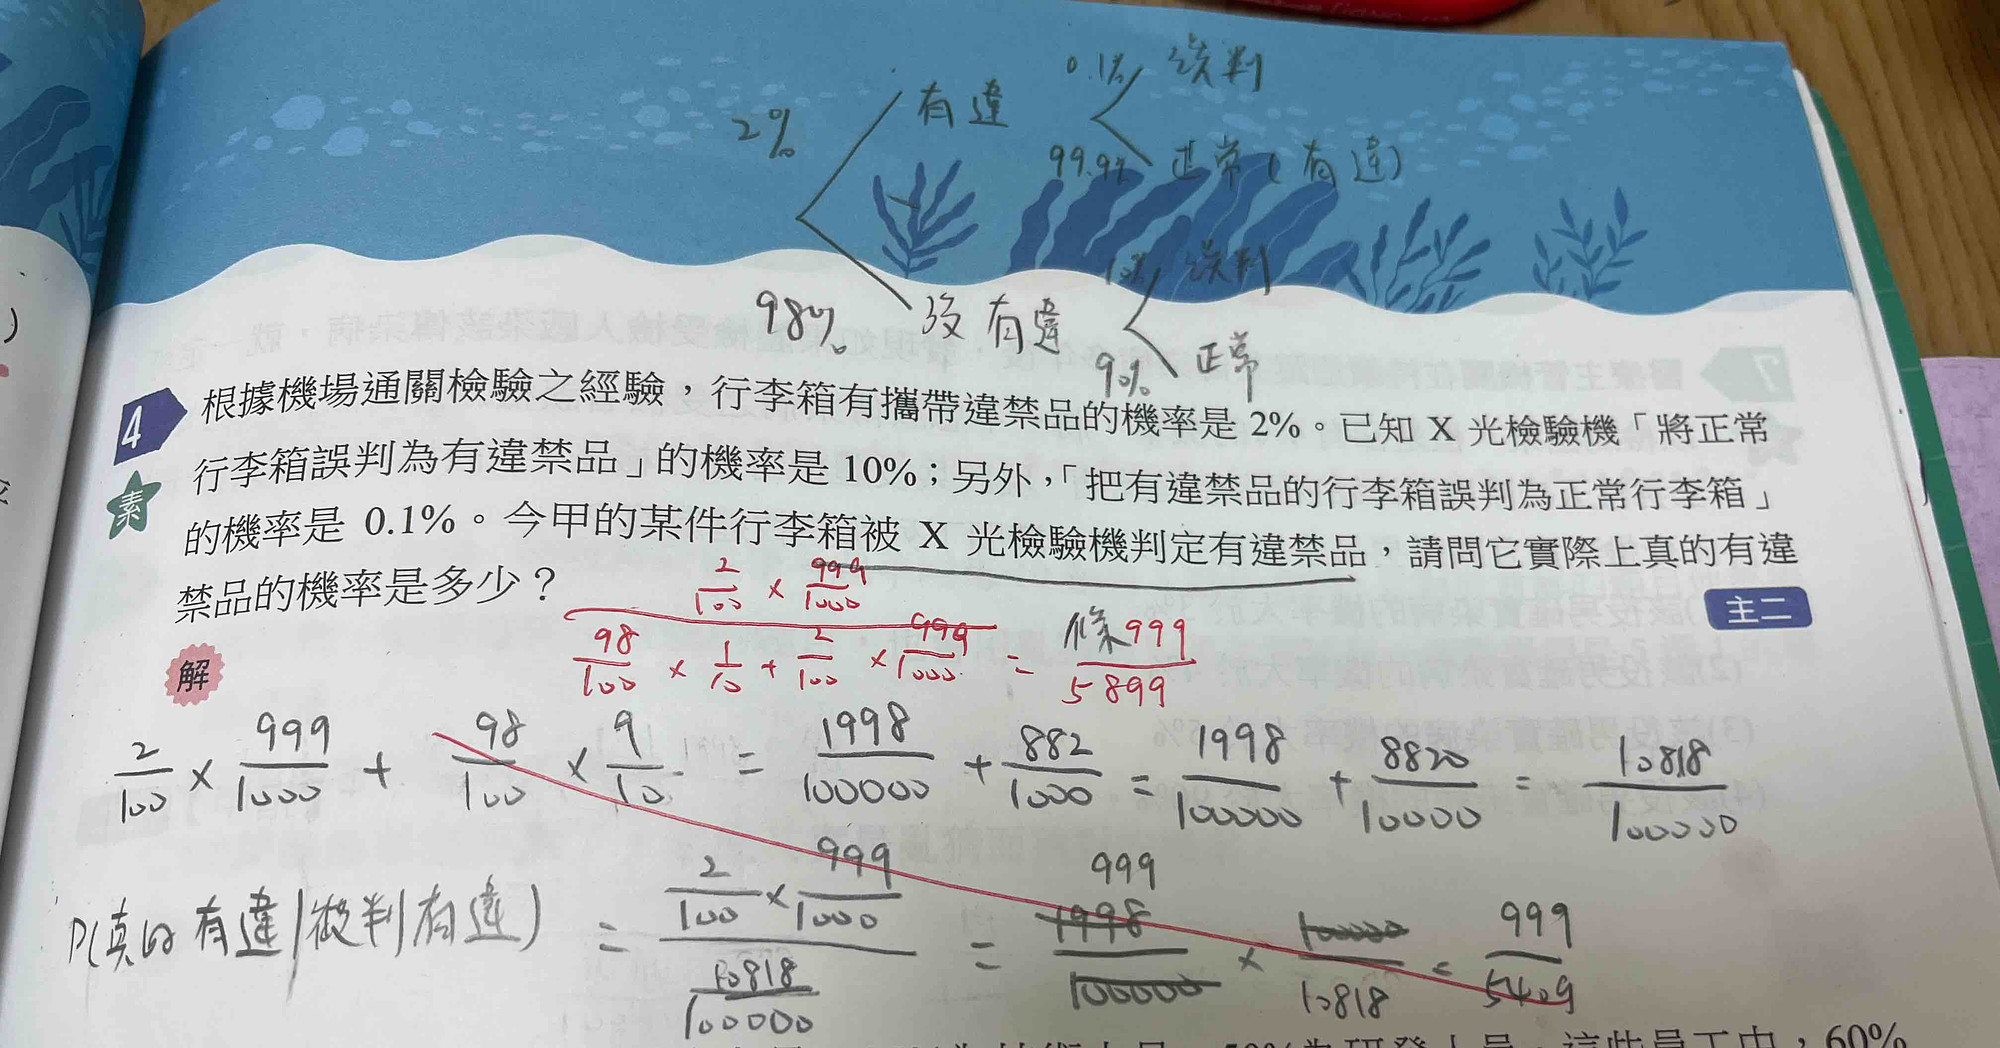 2% 有違 0.1% 誤判
99.9% 正常(有違)
98% 沒有違 10% 誤判
90% 正常
4 根據機場通關檢驗之經驗，行李箱有攜帶違禁品的機率是 2%。已知 X 光檢驗機「將正常
行李箱誤判為有違禁品」的機率是 10%；另外，「把有違禁品的行李箱誤判為正常行李箱」
素 的機率是 0.1%。今甲的某件行李箱被 X 光檢驗機判定有違禁品，請問它實際上真的有違
禁品的機率是多少？
主二
2/100 × 999/1000
98/100 × 1/10 + 2/100 × 999/1000 = 條999/5899
解
2/100 × 999/1000 + 98/100 × 9/10 = 1998/100000 + 882/1000 = 1998/100000 + 8820/10000 = 10818/100000
P(真的有違|被判有違) = 2/100 × 999/1000 / 10818/100000 = 999 1998/100000 × 100000/10818 = 999/5409
60%